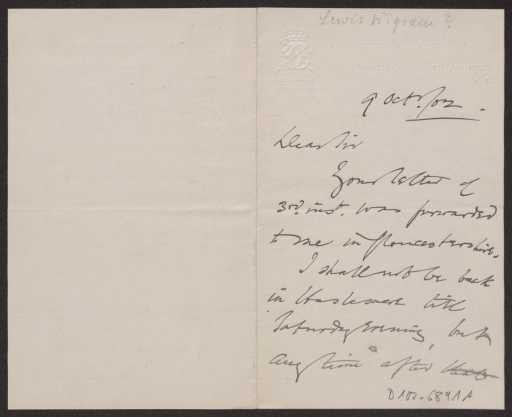 Lewis Wigram ?
9 Oct. /02.
Dear Sir
Your letter of
3rd. inst. was forwarded
to me in Gloucestershire.
I shall not be back
in Haslemere till
Saturday Evening, but
any time after
D102-6891A